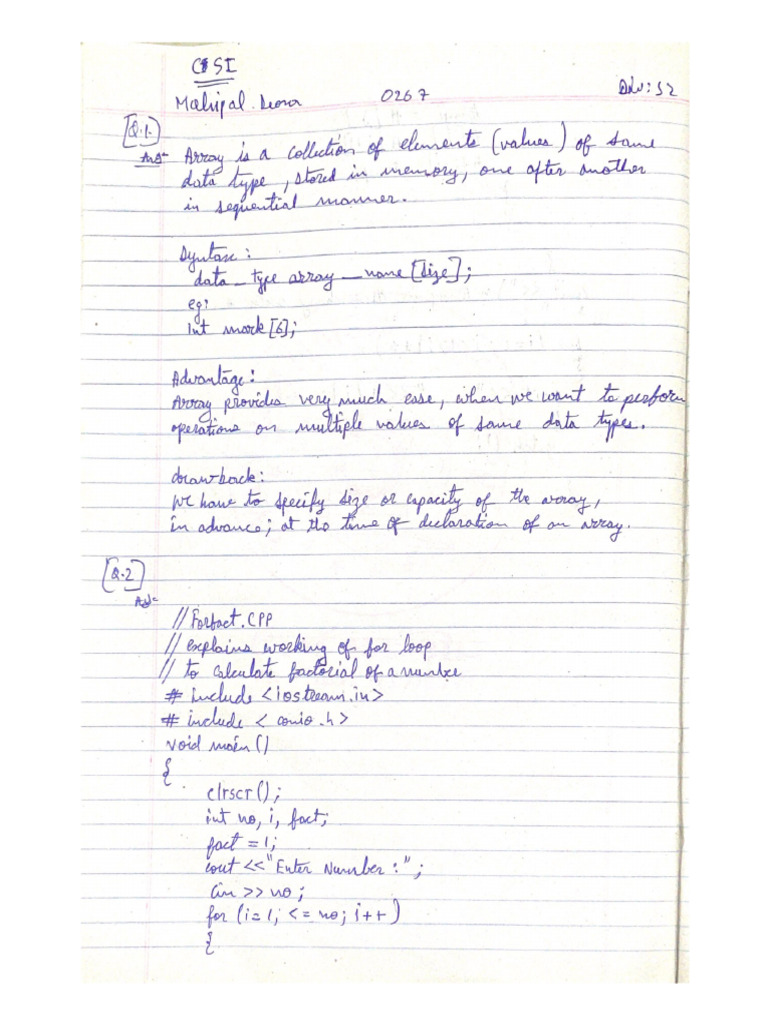 CSSI
Mahipal Deora 0267 Div: S2
[Q.1.]
Ans- Array is a collection of elements (values) of same
data type, stored in memory, one after another
in sequential manner.
Syntax:
data_type array_name [Size];
eg:
Int mark[6];
Advantage:
Array provides very much ease, when we want to perform
operations on multiple values of same data types.
drawback:
We have to specify size or capacity of the array,
in advance; at the time of declaration of an array.
[Q.2]
Ans-
// Forfact.CPP
// explains working of for loop
// to calculate factorial of a number
# include <iostream.in>
# include < conio.h>
void main ()
{
clrscr();
int no, i, fact;
fact = 1;
cout << "Enter Number :" ;
Cin >> no ;
for (i=1; <= no; i++)
{